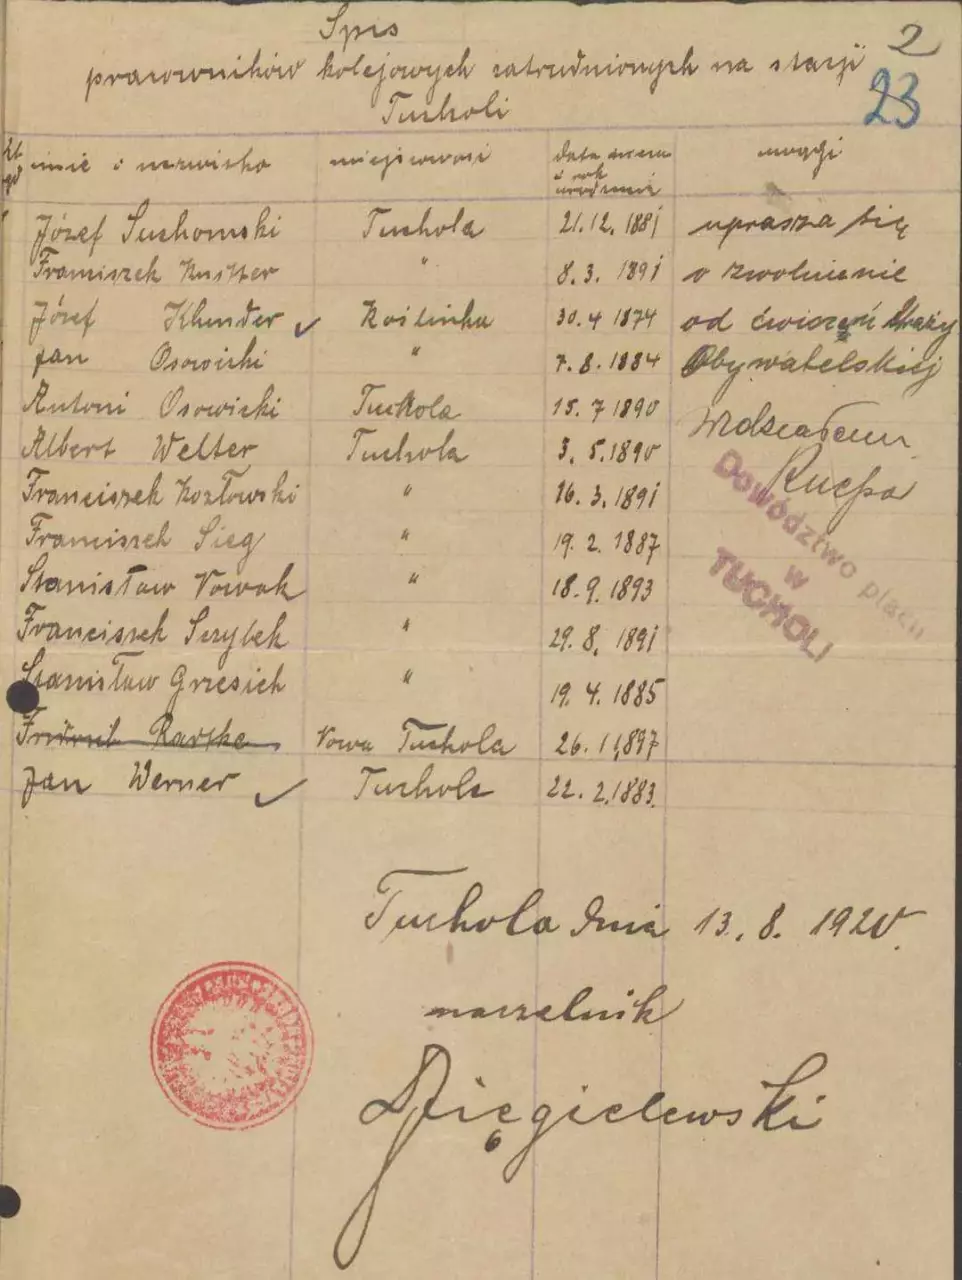 2
23
Spis
pracowników kolejowych zatrudnionych na stacji
Tucholi
imię i nazwisko miejscowość data urodzenia uwagi
Józef Suchomski Tuchola 21.12.1881 uprasza się
Franciszek " 8.3.1891 o zwolnienie
Józef Klunder Koślinka 30.4 1874 od ćwiczeń Straży
Jan Osowicki " 7.8.1884 Obywatelskiej
Antoni Osowicki Tuchola 15.7 1890
Albert Welter Tuchola 3.5.1890
Franciszek Kozłowski " 16.3.1891
Franciszek Sieg " 19.2.1887
Stanisław Nowak " 18.9.1893
Franciszek " 29.8.1891
Stanisław Grzesich " 19.4.1885
Nowa Tuchola 26.11.897
Jan Werner Tuchola 22.2.1883.
Dowództwo placu
w
TUCHOLI
Tuchola dnia 13.8.1920.
naczelnik
Dzięgielewski